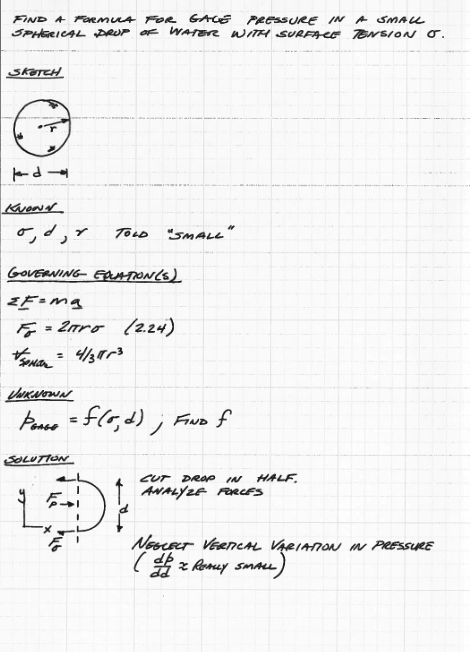 FIND A FORMULA FOR GAGE PRESSURE IN A SMALL
SPHERICAL DROP OF WATER WITH SURFACE TENSION σ.
SKETCH
r
d
KNOWN
σ, d, r TOLD "SMALL"
GOVERNING EQUATION(S)
ΣF = ma
Fσ = 2πrσ (2.24)
V̶ SPHERE = 4/3 πr³
UNKNOWN
pGAGE = f(σ, d) ; FIND f
SOLUTION
CUT DROP IN HALF.
ANALYZE FORCES
y
Fp
d
x
Fσ
NEGLECT VERTICAL VARIATION IN PRESSURE
(dp/dd ≈ REALLY SMALL)